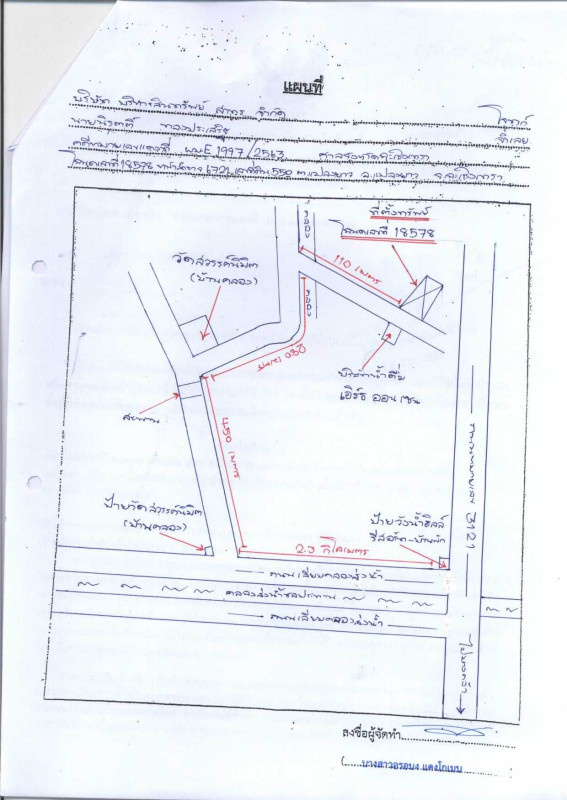 แผนที่
บริษัท บริหารสินทรัพย์ สุขุมวิท จำกัด โจทก์
จำเลย
คดีหมายเลขแดงที่ ผบE 1997/2563 ศาลจังหวัดฉะเชิงเทรา
โฉนดเลขที่ 18578 หน้าสำรวจ 6721 เลขที่ดิน 550 ต.แปลงยาว อ.แปลงยาว จ.ฉะเชิงเทรา
ที่ตั้งทรัพย์
โฉนดเลขที่ 18578
110 เมตร
วัดสวรรค์นิมิต
(บ้านคลอง)
เมตร
บริษัทน้ำดื่ม
เอิร์ธ ออน เซน
สะพาน
450 เมตร
ทางหลวงหมายเลข 3121
ป้ายวัดสวรรค์นิมิต
(บ้านคลอง)
ป้ายวังน้ำฮิลล์
รีสอร์ท-บ้านพัก
2.3 กิโลเมตร
ถนนเลียบคลองส่งน้ำ
คลองส่งน้ำชลประทาน
ถนนเลียบคลองส่งน้ำ
ลงชื่อผู้จัดทำ
(นางสาวอรอนง แดงโกเมน